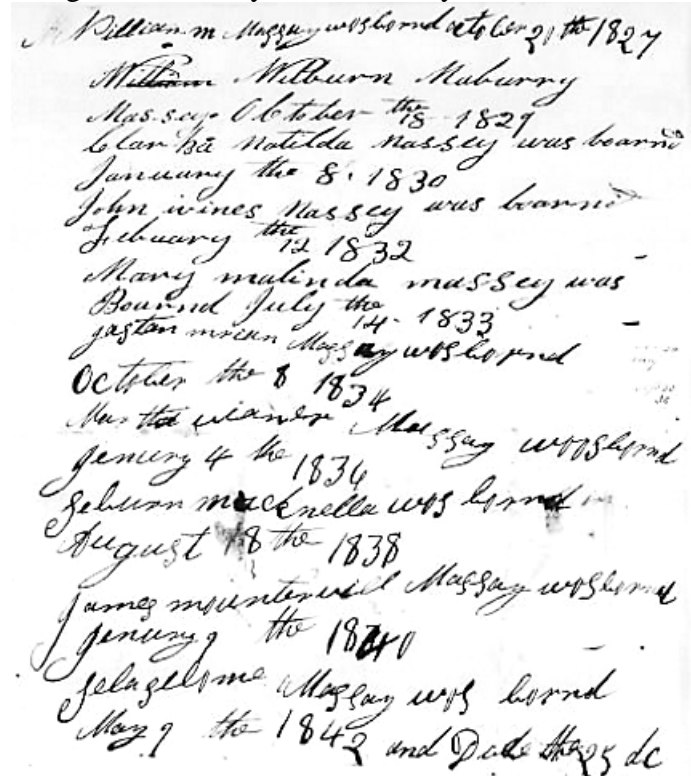 William m Massay wos bornd october 20 th 1827
William Wilburn Maburry
Massey October the 18 1829
Clarka Matilda Massey was boarnd
January the 8. 1830
John wines Massey was boarnd
Febuary the 12 1832
Mary malinda massey was
Bournd July the 14- 1833
Massay wos bornd
October the 8 1834
Martha Massay woos bornd
Jenuery 4 the 1836
Seburn macknella wos bornd
August 18 the 1838
James mountervill Massay wos bornd
Jenury 9 the 1840
Massay wos bornd
May 9 the 1842 and Dide the 25 dc